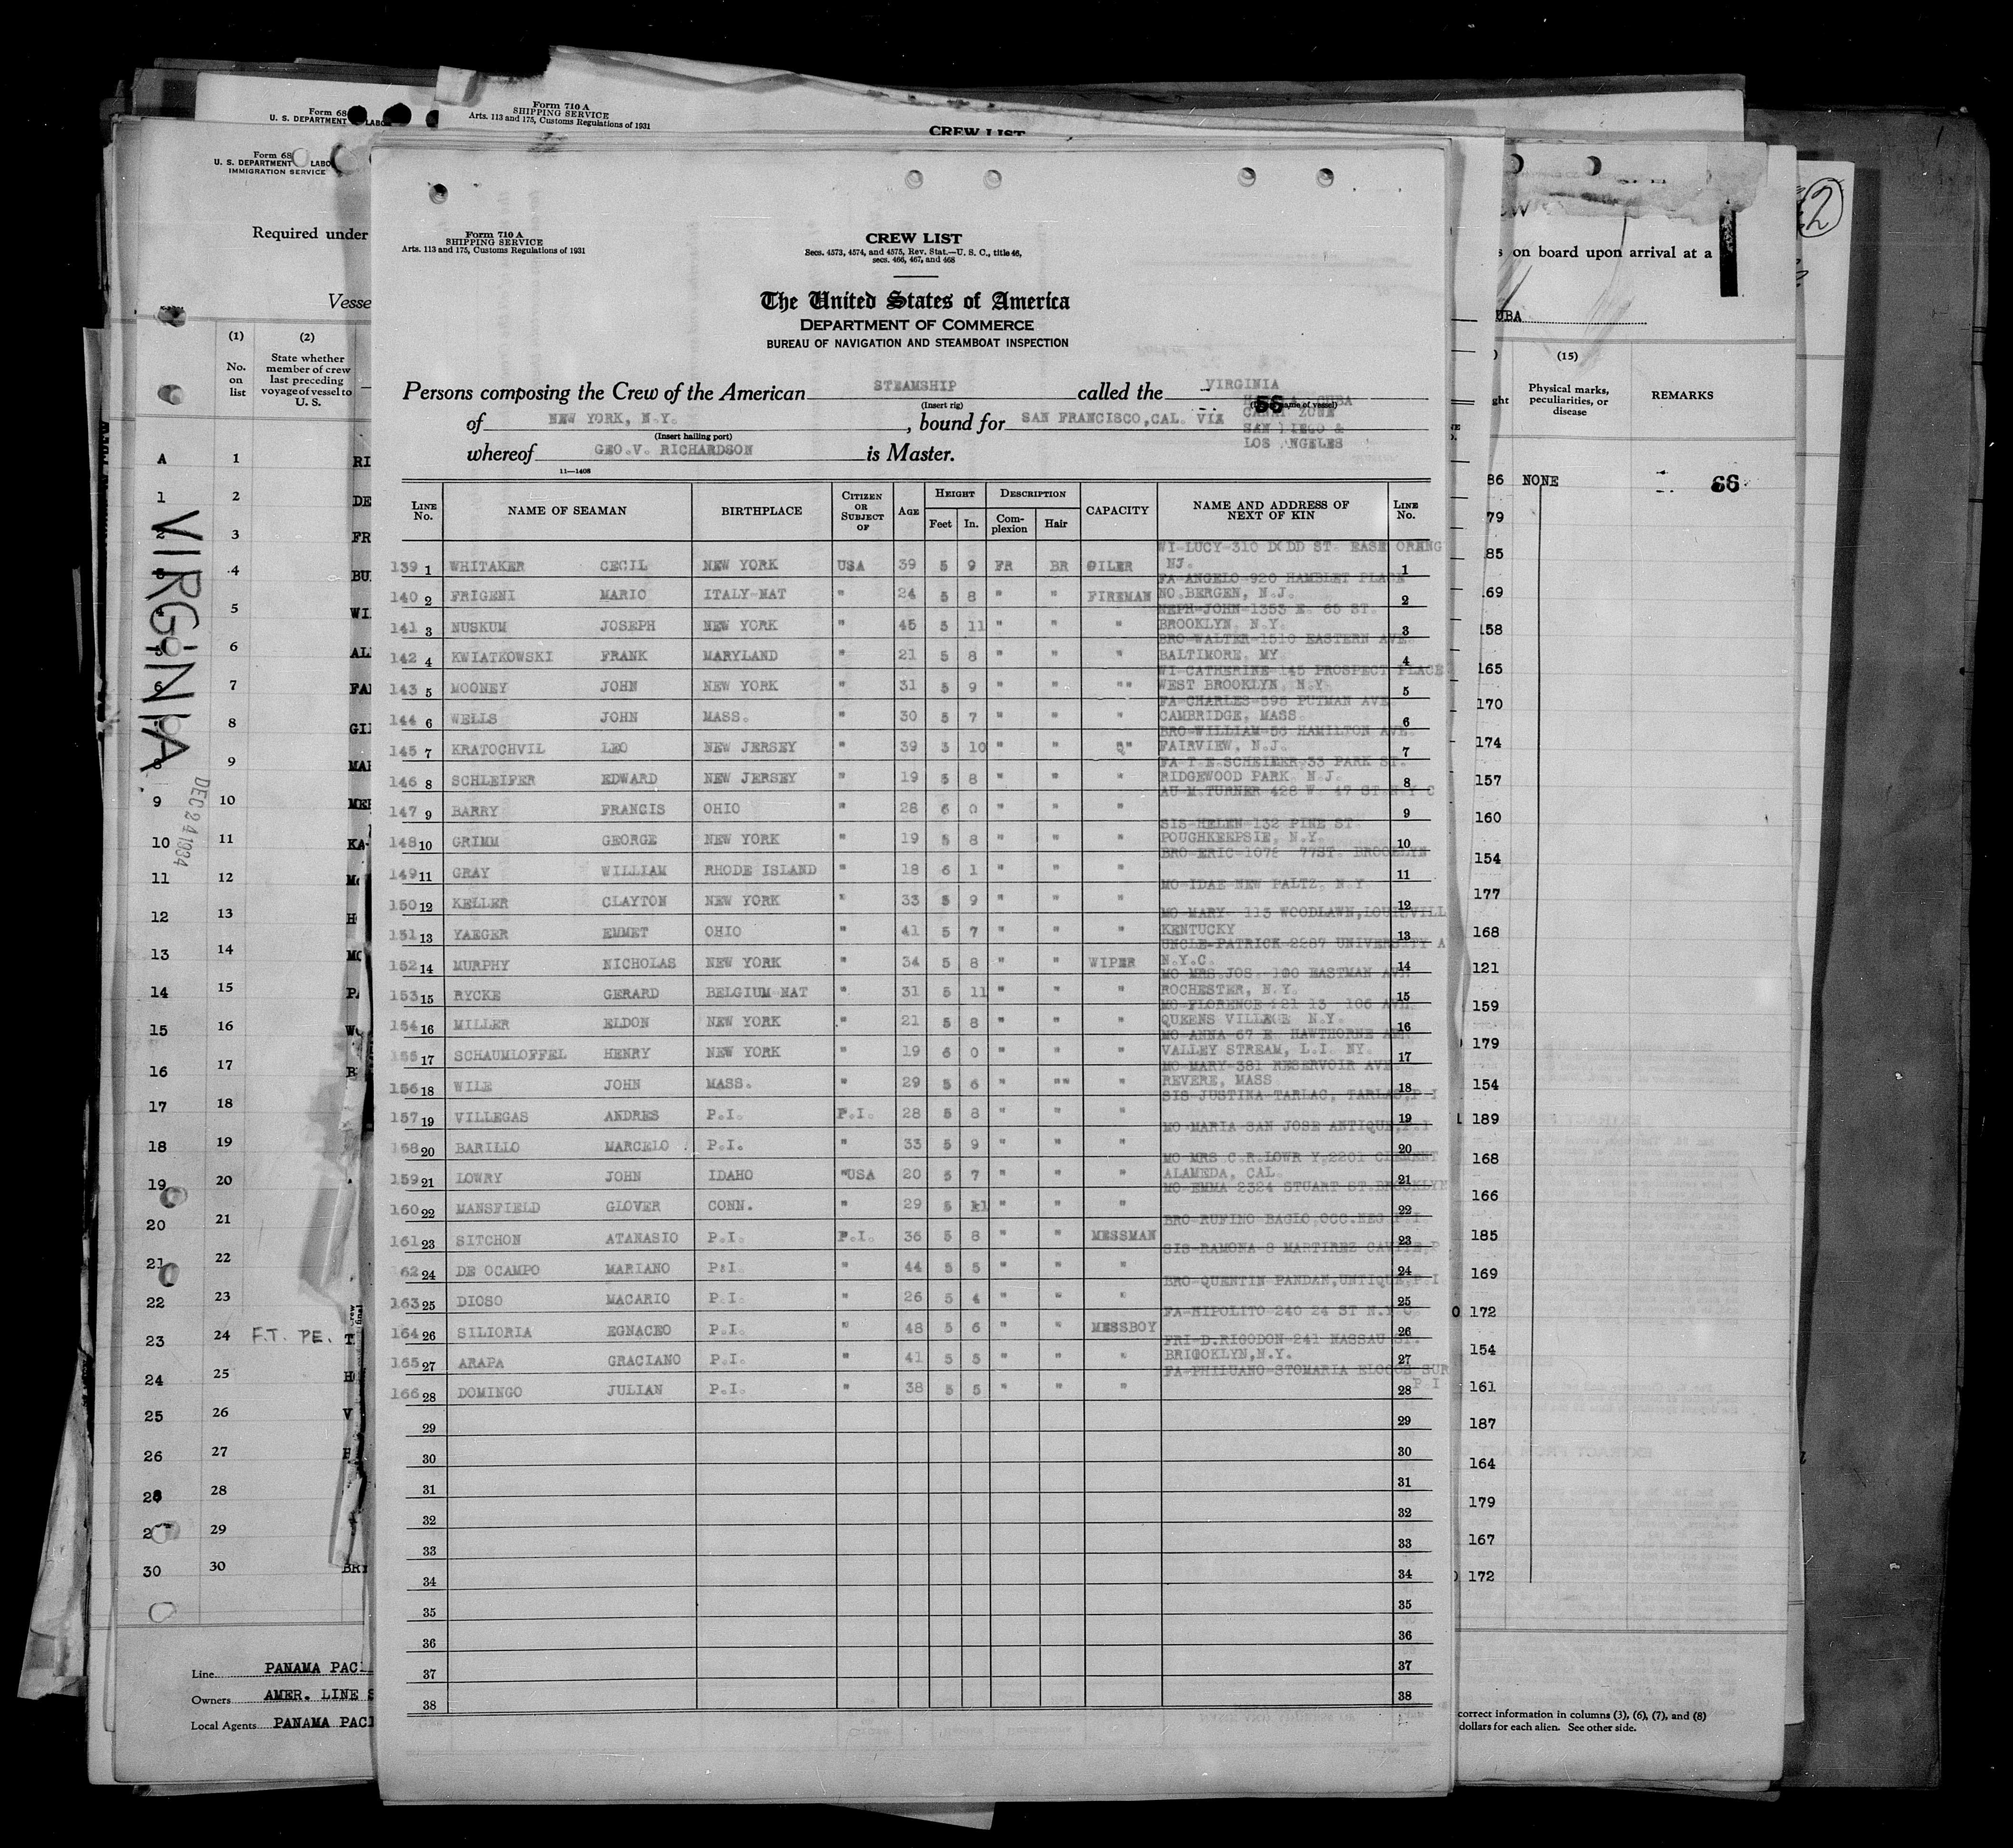 Form 710 A
SHIPPING SERVICE
Arts. 113 and 175, Customs Regulations of 1931
CREW LIST
Form 68
U. S. DEPARTMENT LABO
Form 68
U. S. DEPARTMENT LABO
IMMIGRATION SERVICE
Required under
Vesse
(1) (2)
No. on list
State whether member of crew last preceding voyage of vessel to U. S.
VIRGINIA
DEC 24 1934
F.T. PE.
Line PANAMA PAC
Owners AMER. LINE S
Local Agents PANAMA PAC
Form 710 A
SHIPPING SERVICE
Arts. 113 and 175, Customs Regulations of 1931
CREW LIST
Secs. 4573, 4574, and 4575, Rev. Stat.—U. S. C., title 46,
secs. 466, 467, and 468
The United States of America
DEPARTMENT OF COMMERCE
BUREAU OF NAVIGATION AND STEAMBOAT INSPECTION
Persons composing the Crew of the American STEAMSHIP called the VIRGINIA
(Insert rig) name of vessel)
56
of NEW YORK, N.Y. , bound for SAN FRANCISCO, CAL. VIA CUBA
CANAL ZONE
SAN DIEGO &
LOS ANGELES
(Insert hailing port)
whereof GEO.V. RICHARDSON is Master.
11—1408
LINE No. NAME OF SEAMAN BIRTHPLACE CITIZEN OR SUBJECT OF AGE HEIGHT Feet In. DESCRIPTION Complexion Hair CAPACITY NAME AND ADDRESS OF NEXT OF KIN LINE No.
WI-LUCY-310 DODD ST. EASE ORENG
139 1 WHITAKER CECIL NEW YORK USA 39 5 9 FR BR OILER NJ. 1
FA-ANGELO-920 HAMBLET PLACE
140 2 FRIGENI MARIO ITALY-NAT " 24 5 8 " " FIREMAN NO.BERGEN, N.J. 2
NEPH-JOHN-1353 E. 65 ST.
141 3 NUSKUM JOSEPH NEW YORK " 45 5 11 " " " BROOKLYN. N.Y. 3
BRO-WALTER-1510 EASTERN AVE
142 4 KWIATKOWSKI FRANK MARYLAND " 21 5 8 " " " BALTIMORE. MY 4
WI-CATHERINE-145 PROSPECT PLACE
143 5 MOONEY JOHN NEW YORK " 31 5 9 " " "" WEST BROOKLYN. N.Y 5
FA-CHARLES-595 PUTMAN AVE
144 6 WELLS JOHN MASS. " 30 5 7 " " " CAMBRIDGE, MASS. 6
BRO-WILLIAM-56 HAMILTON AVE.
145 7 KRATOCHVIL LEO NEW JERSEY " 39 5 10 " " " FAIRVIEW, N.J. 7
FA-T E.SCHEIFER 33 PARK ST.
146 8 SCHLEIFER EDWARD NEW JERSEY " 19 5 8 " " " RIDGEWOOD PARK N.J. 8
AU M.TURNER 428 W. 47 ST.N.Y C
147 9 BARRY FRANCIS OHIO " 28 6 0 " " " 9
SIS-HELEN-132 PINE ST.
148 10 GRIMM GEORGE NEW YORK " 19 5 8 " " " POUGHKEEPSIE, N.Y. 10
BRO-ERIC-1078 77ST. BROOKLYN
149 11 GRAY WILLIAM RHODE ISLAND " 18 6 1 " " " 11
MO-IDAE NEW PALTZ. N.Y.
150 12 KELLER CLAYTON NEW YORK " 33 5 9 " " " 12
MO-MARY- 115 WOODLAWN,LOUISVILL
151 13 YAEGER EMMET OHIO " 41 5 7 " " " KENTUCKY 13
UNCLE-PATRICK-2287 UNIVERSITY A
152 14 MURPHY NICHOLAS NEW YORK " 34 5 8 " " WIPER N.Y.C. 14
MO MRS.JOS. 100 EASTMAN AV.
153 15 RYCKE GERARD BELGIUM NAT " 31 5 11 " " " ROCHESTER, N.Y. 15
MO-FLORENCE 221 13 106 AVE.
154 16 MILLER ELDON NEW YORK " 21 5 8 " " " QUEENS VILLAGE N.Y. 16
MO-ANNA 67 E. HAWTHORNE AVE
155 17 SCHAUMLOFFEL HENRY NEW YORK " 19 6 0 " " " VALLEY STREAM, L.I. NY. 17
MO-MARY-381 RESERVOIR AVE
156 18 WILE JOHN MASS. " 29 5 6 " "" " REVERE, MASS 18
SIS JUSTINA TARLAC, TARLAC,P I
157 19 VILLEGAS ANDRES P.I. P.I. 28 5 8 " " " 19
MO-MARIA SAN JOSE ANTIQUE,P.I
158 20 BARILLO MARCELO P.I. " 33 5 9 " " " 20
MO MRS C.R.LOWR Y.2201 CLEMENT
159 21 LOWRY JOHN IDAHO "USA 20 5 7 " " " ALAMEDA, CAL. 21
MO-EMMA 2324 STUART ST.BROOKLYN
160 22 MANSFIELD GLOVER CONN. " 29 5 11 " " " 22
BRO-RUFINO BAGIO,OCC.NEG P.I
161 23 SITCHON ATANASIO P.I. P.I. 36 5 8 " " MESSMAN 23
SIS-RAMONA-8 MARTIREZ CAVITE,P
62 24 DE OCAMPO MARIANO P.I. " 44 5 5 " " " 24
BRO-QUENTIN PANDAN,UNTIQUE,P.I
163 25 DIOSO MACARIO P.I. " 26 5 4 " " " 25
FA-HIPOLITO 240 24 ST N.Y C
164 26 SILIORIA EGNACEO P.I. " 48 5 6 " " MESSBOY 26
FRI-D.RIGODON-241 NASSAU ST.
165 27 ARAPA GRACIANO P.I. " 41 5 5 " " " BRIGOKLYN,N.Y. 27
FA-PHILUANO-STOMARIA ELOCOS SUR
166 28 DOMINGO JULIAN P.I. " 38 5 5 " " " P.I 28
29 29
30 30
31 31
32 32
33 33
34 34
35 35
36 36
37 37
38 38
2
s on board upon arrival at a
UBA
(15)
Physical marks, peculiarities, or disease
REMARKS
86 NONE 66
79
85
169
158
165
170
174
157
160
154
177
168
121
159
179
154
189
168
166
185
169
172
154
161
187
164
179
167
172
correct information in columns (3), (6), (7), and (8)
dollars for each alien. See other side.